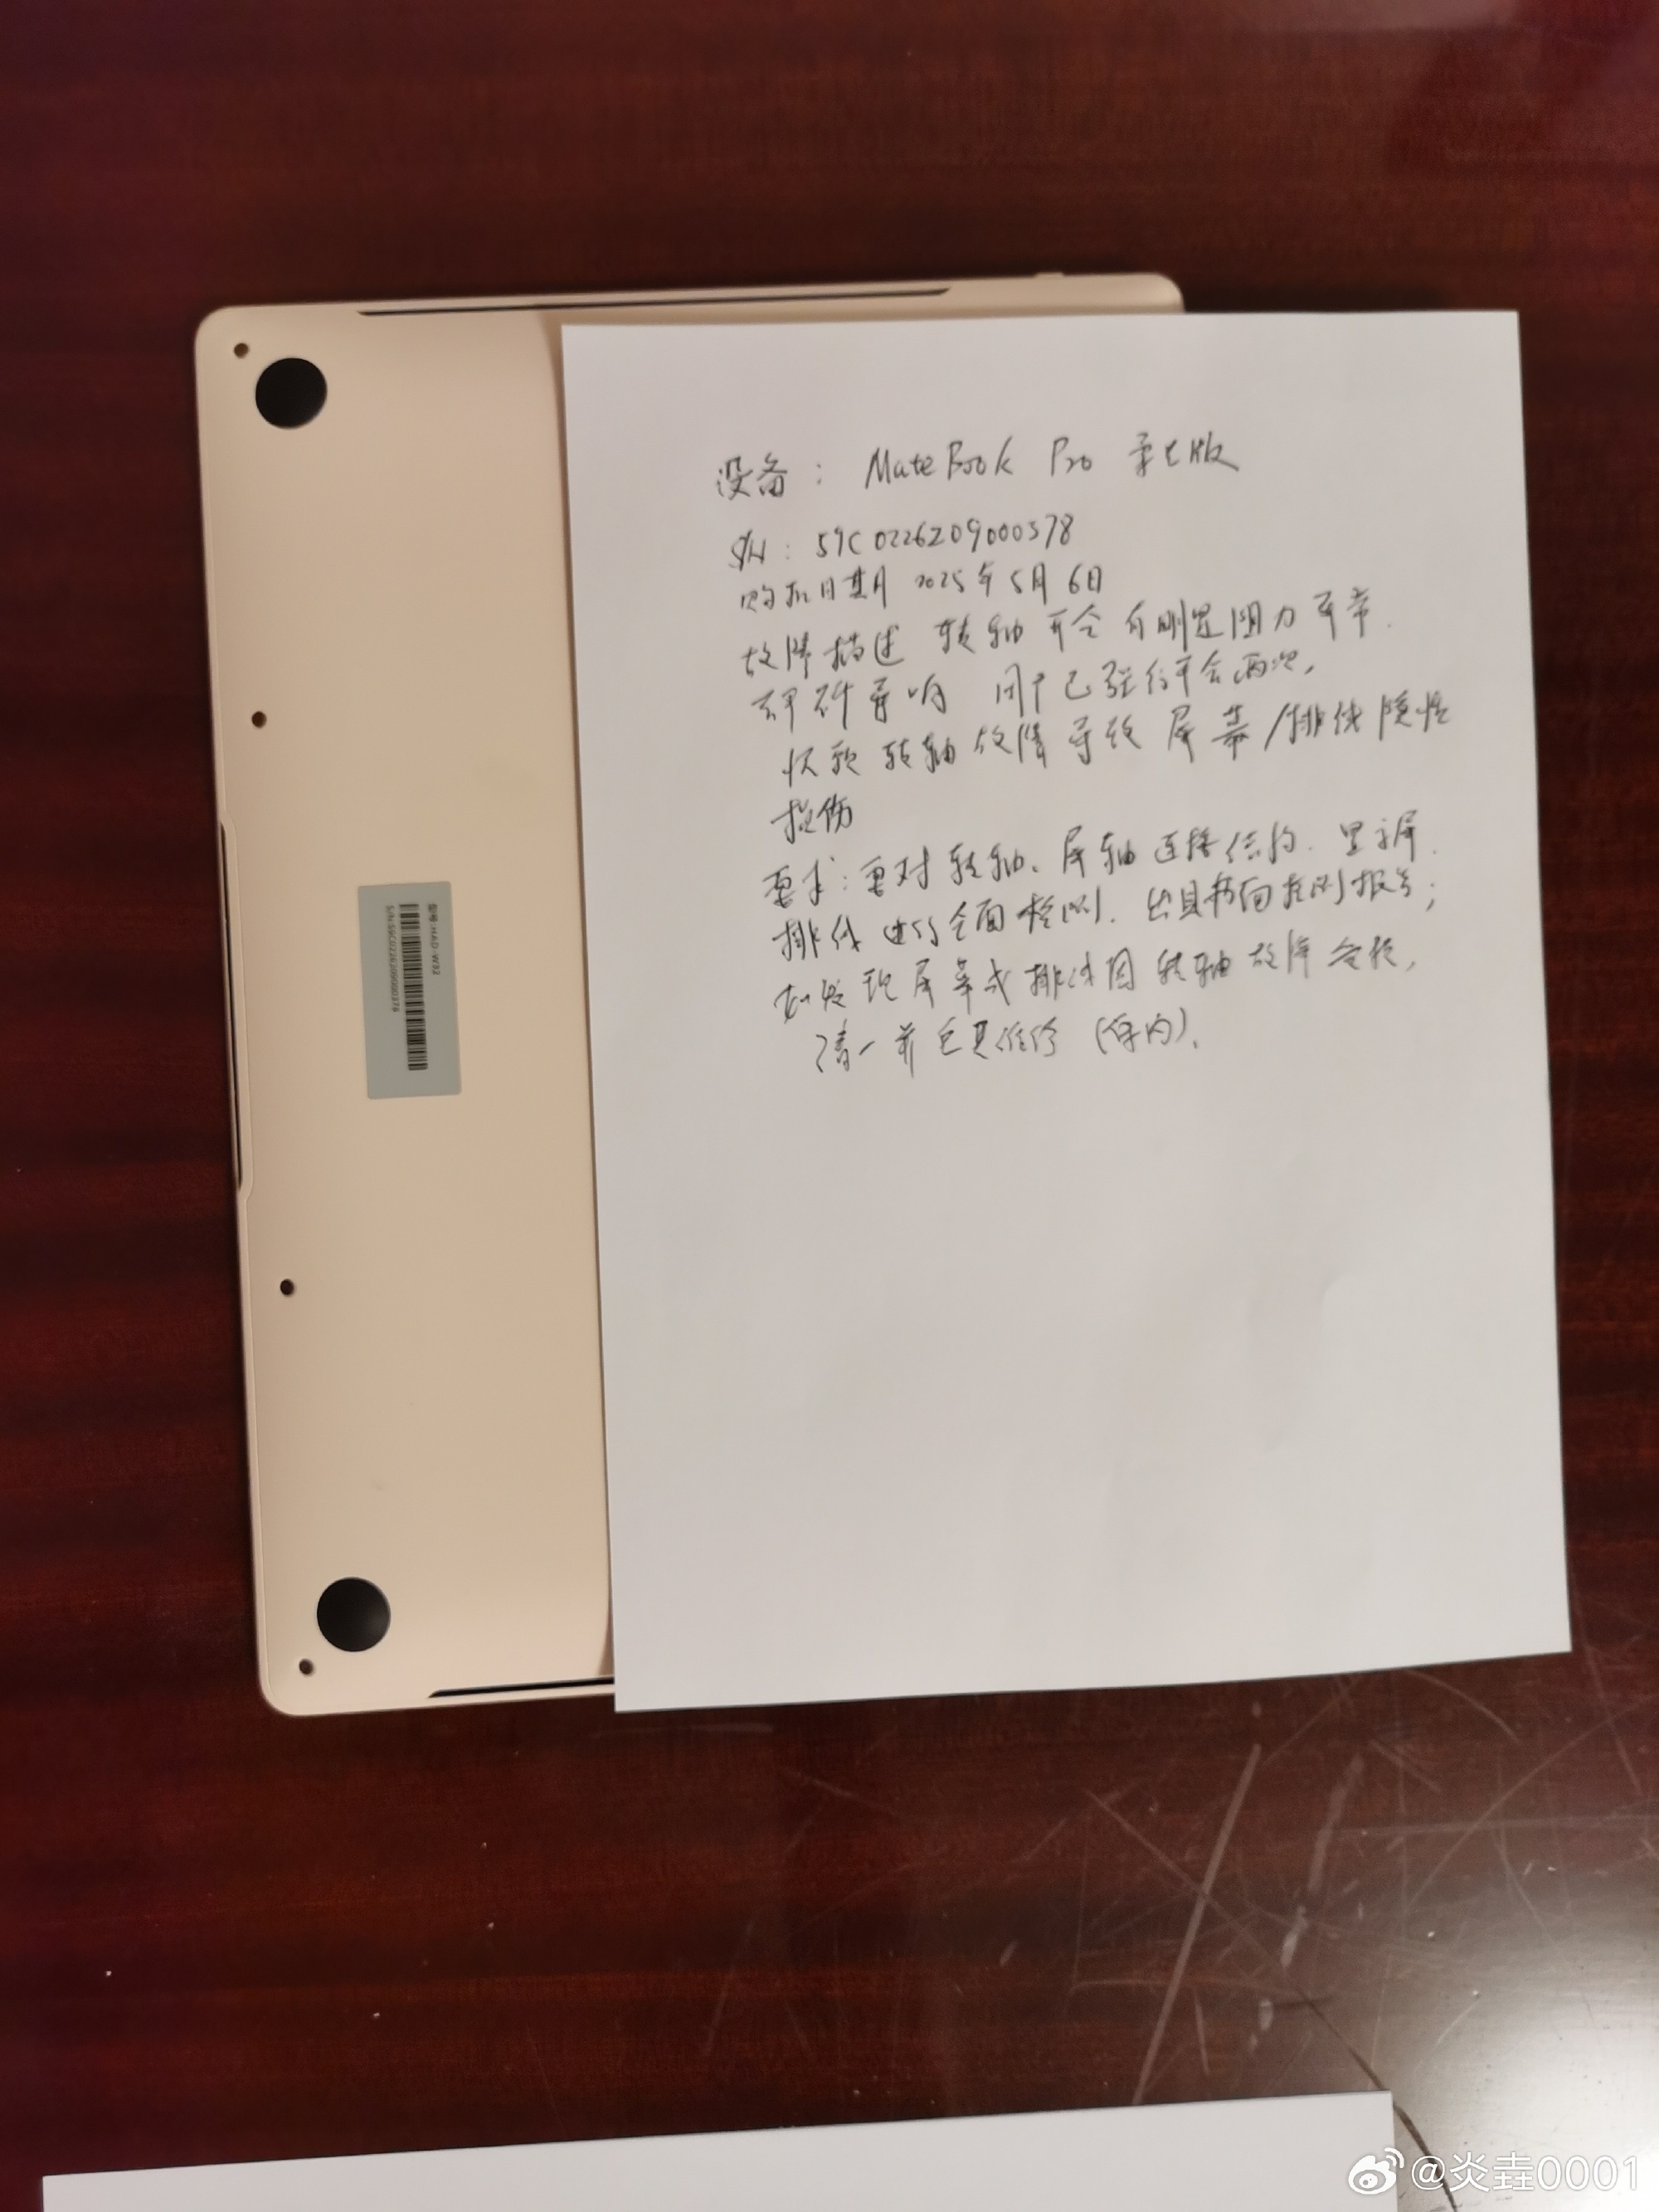 设备: MateBook Pro 柔光版
S/N: 59C0226209000378
购机日期 2025年5月6日
故障描述 转轴开合有明显阻力 异常
异响 用户已强行开合两次,
怀疑转轴故障导致屏幕/排线隐性
损伤
要求: 要对转轴、屏轴连接结构、显示屏、
排线进行全面检测、出具书面检测报告;
如发现屏幕或排线因转轴故障受损,
请一并免费维修(保内).
型号:HAD-W32
S/N:59C0226209000378
@炎垚0001